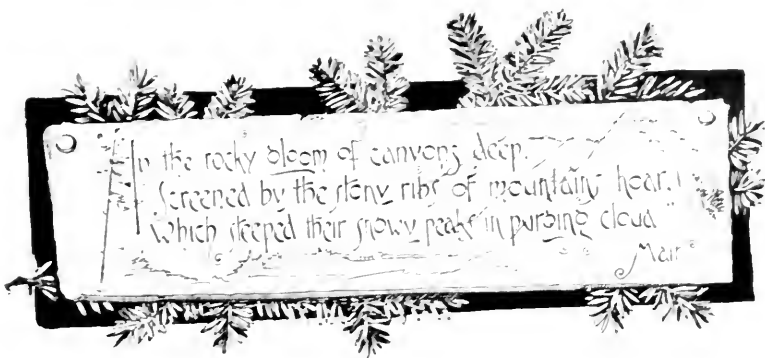 In the rocky gloom of canyons deep,
Screened by the stony ribs of mountains hoar,
Which steeped their snowy peaks in purging cloud"
Mair